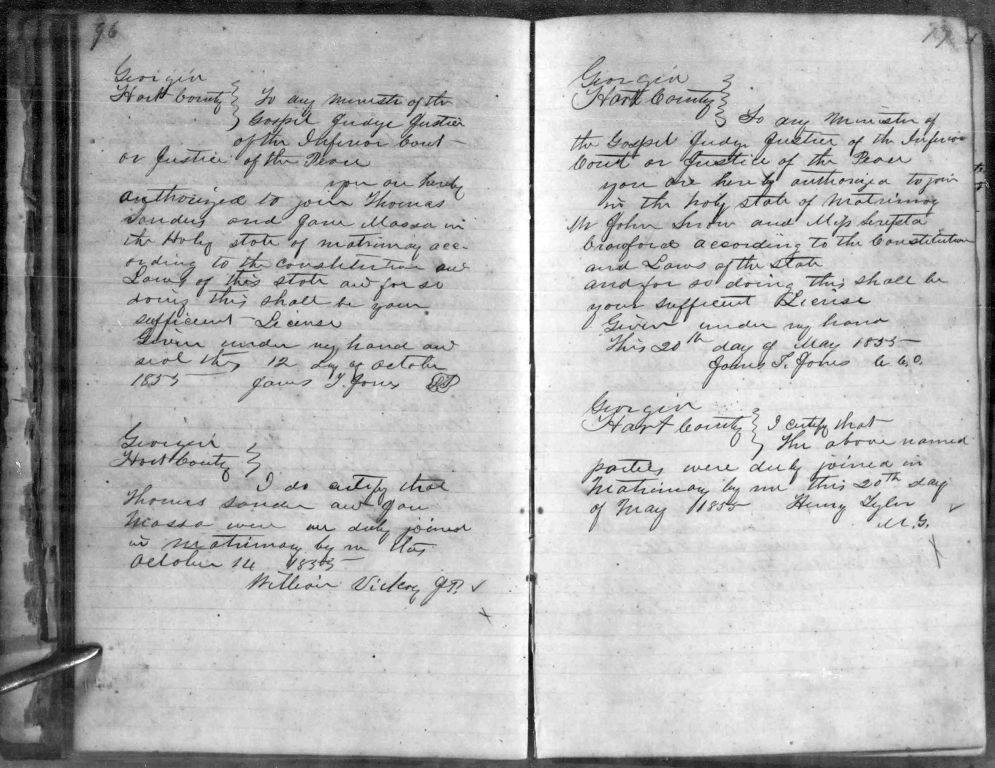 96
Georgia
Hart County } To any Minister of the
Gospel Judge Justice
of the Inferior Court
or Justice of the Peace
you are hereby
authorized to join Thomas
Sanders and Jane Massa in
the Holy state of matrimony acc-
ording to the constitution and
Laws of this state and for so
doing this shall be your
sufficient License
Given under my hand and
seal this 12 day of October
1855 James T. Jones
Georgia
Hart County }
I do certify that
Thomas Sander and Jane
Massa were duly joined
in matrimony by me this
October 14 1855
William Vickery JP
97
Georgia
Hart County }
To any Minister of
the Gospel Judge Justice of the Inferior
Court or Justice of the Peace
you are hereby authorized to join
in the holy state of Matrimony
Mr John Snow and Miss
Crawford according to the Constitution
and Laws of the state
and for so doing this shall be
your sufficient License
Given under my hand
This 20th day of May 1855
James T. Jones C.C.O.
Georgia
Hart County } I certify that
The above named
parties were duly joined in
Matrimony by me this 20th day
of May 1855 Henry Tyler
M. G.